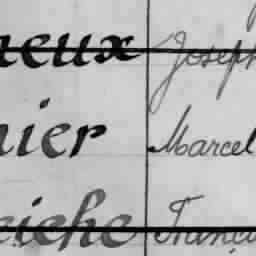 neux Joseph
nier Marcel
eiche Franço